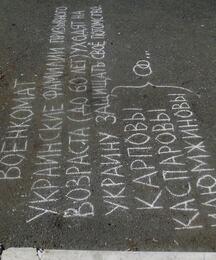 ВОЕНКОМАТ
УКРАИНСКИЕ ФАМИЛИИ ПРИЗЫВНОГО
ВОЗРАСТА (ДО 60 ЛЕТ) УХОДЯТ НА
УКРАИНУ ЗАЩИЩАТЬ СВОЁ ПОТОМСТВО
КАРПОВЫ
КАСПАРОВЫ